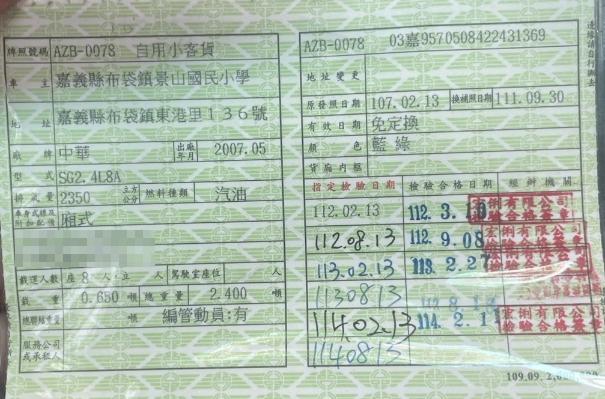 牌照號碼 AZB-0078 自用小客貨
車主 嘉義縣布袋鎮景山國民小學
地址 嘉義縣布袋鎮東港里136號
廠牌 中華 出廠年月 2007.05
型式 SG2.4L8A
排氣量 2350 立方公分 燃料種類 汽油
車身式樣及附加配備 廂式
載運人數 座 8 人,立 人 駕駛室座位 人
載重 0.650 噸 總重量 2.400 噸
總聯結重量 噸 編管動員:有
服務公司或承租人
AZB-0078 03嘉9570508422431369
地址變更
原發照日期 107.02.13 換補照日期 111.09.30
有效日期 免定換
顏色 藍綠
貨廂內框
指定檢驗日期 檢驗合格日期 經辦機關
112.02.13 112.3.10 宏俐有限公司 檢驗合格簽章
112.08.13 112.9.08 宏俐有限公司 檢驗合格簽章
113.02.13 113.2.27
1130813
114.02.13 114.2.1 宏俐有限公司 檢驗合格簽章
1140813
109.09.